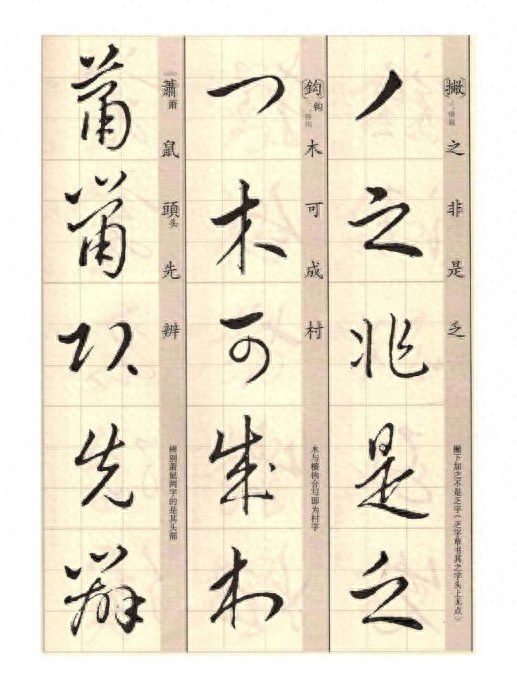 撇之非是乏
撇下加之不是乏字（乏字草书其之字头上无点）
鈎钩木可成村
横钩
木与横钩合写即为村字
蕭萧鼠頭头先辨
辨别萧鼠两字的是其头部